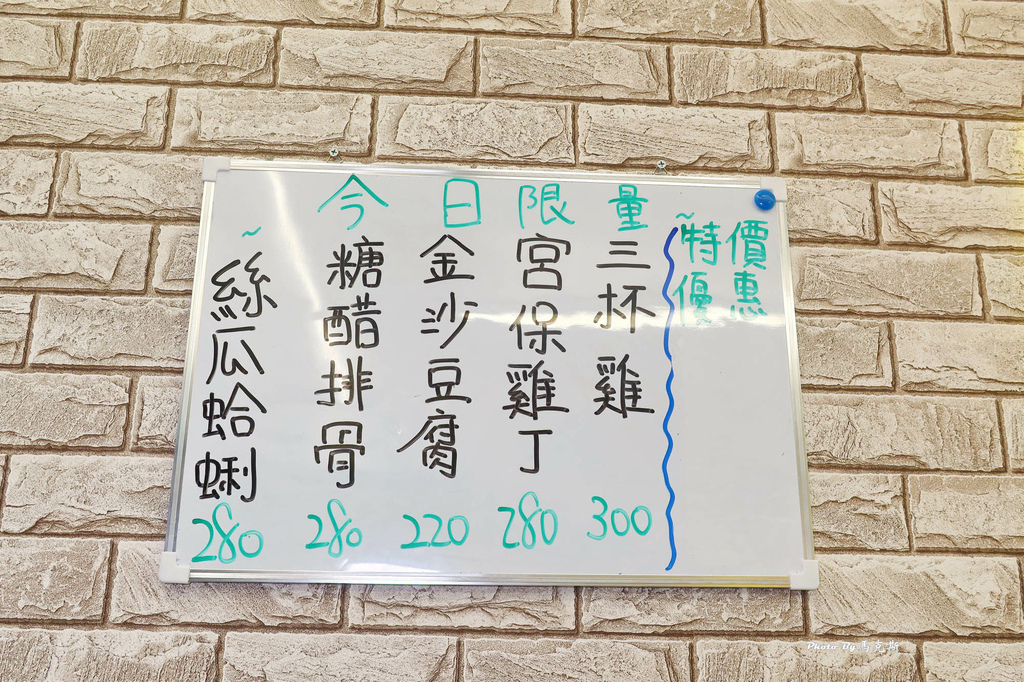 ~特優
價惠
今日限量
三杯雞 300
宮保雞丁 280
金沙豆腐 220
糖醋排骨 280
~絲瓜蛤蜊 280
Photo By 馬克斯